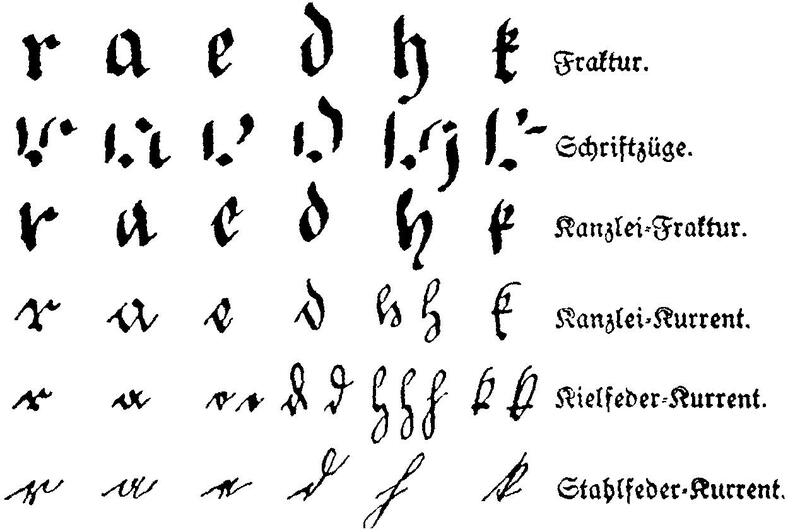 r a e d h k Fraktur.
r a e d h k Schriftzüge.
r a e d h k Kanzlei-Fraktur.
r a e d h h k Kanzlei-Kurrent.
r a e e d d h h h k k Kielfeder-Kurrent.
r a e d h k Stahlfeder-Kurrent.